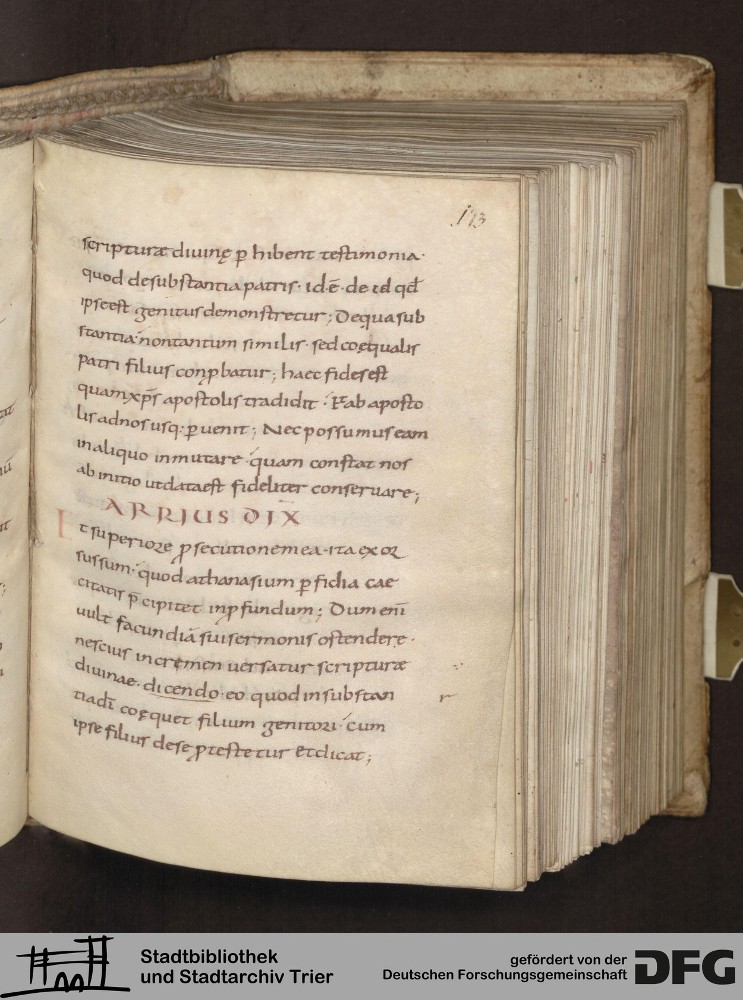 173
scripturæ diuinę ꝑhibent testimonia·
quod desubstantia patris· idē· de id qđ
ipse est genitus demonstretur; Dequa sub
stantia non tantum similis· sed coęqualis
patri filius conꝓbatur; haec fides est
quam xp̄s apostolis tradidit· & ab aposto
lis ad nos usq· ꝑuenit; Nec possumus eam
in aliquo inmutare· quam constat nos
ab initio ut data est fideliter conseruare;
ARRIUS DIX̄
Et superiore ꝓsecutione mea· ita ex or
sus sum· quod athanasium ꝑfidia cae
citatis p̄cipitet inꝓfundum; Dum enī
uult facundiā sui sermonis ostendere·
nescius in crimen uersatur scripturæ
diuinae· dicendo· eo quod in substan
tia dī coęquet filium genitori· cum
ipse filius de se ꝓtestetur et dicat;
r
Stadtbibliothek
und Stadtarchiv Trier
gefördert von der
Deutschen Forschungsgemeinschaft
DFG